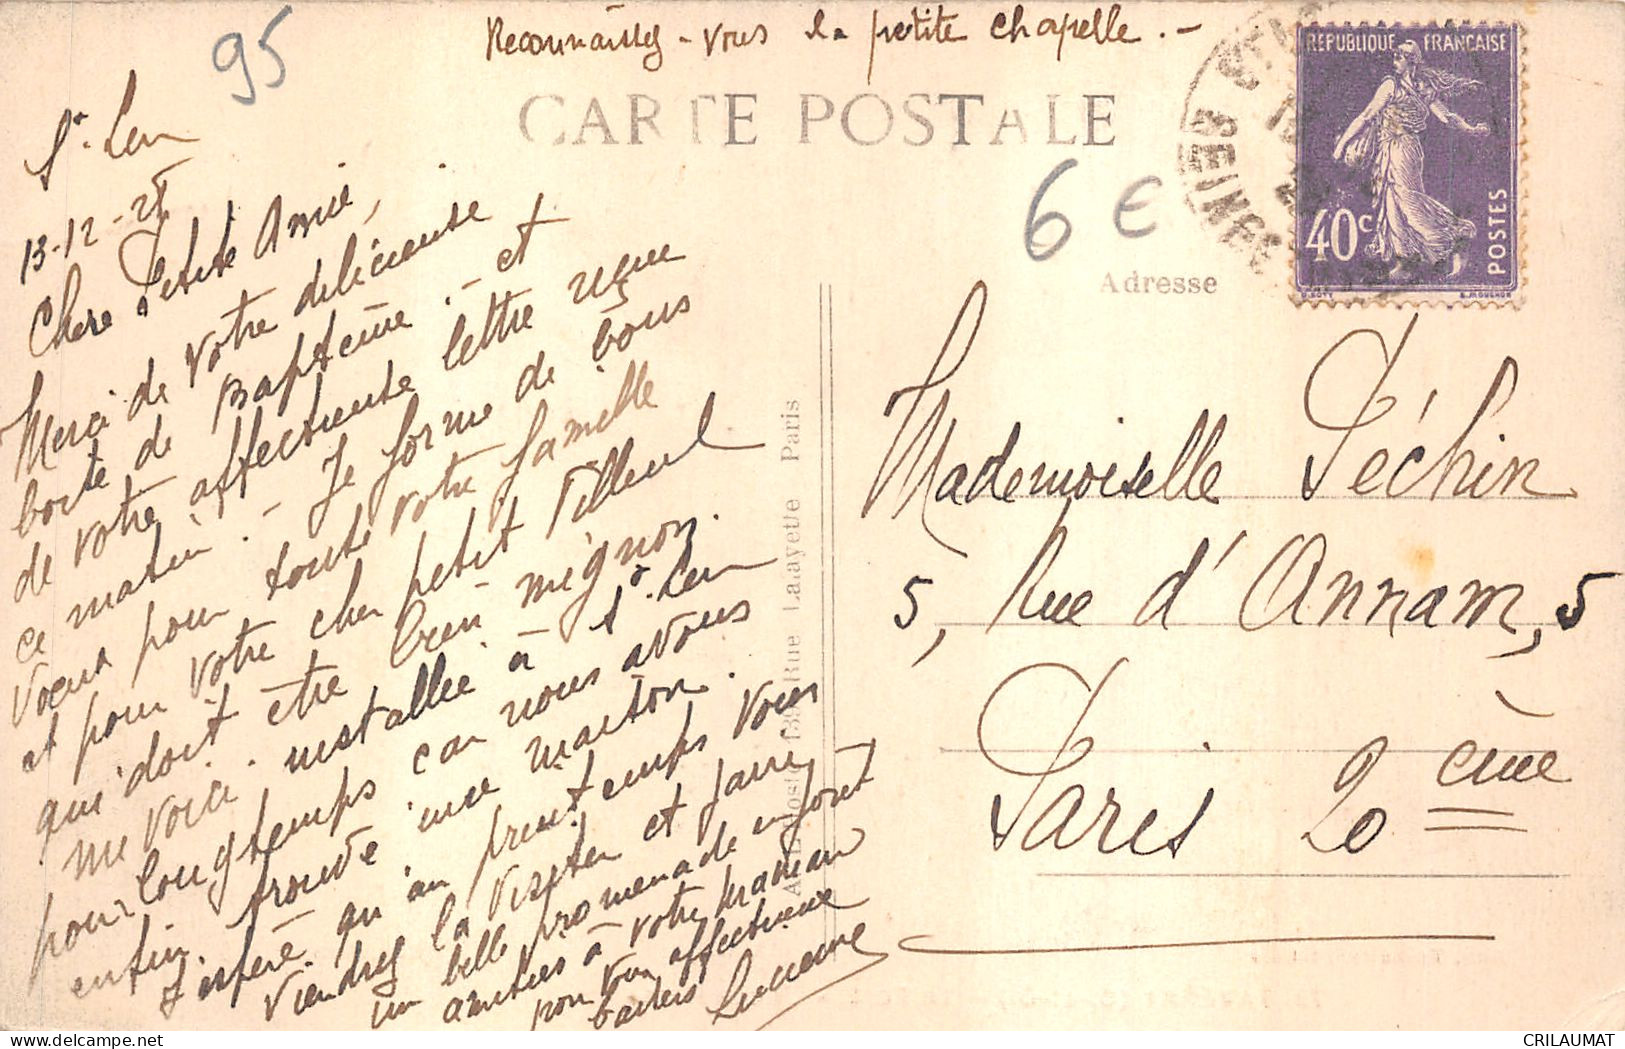 Reconnaissez-vous la petite Chapelle.-
95
CARTE POSTALE
REPUBLIQUE FRANÇAISE
40c
POSTES
6 €
Adresse
St-Leu
13-12-25
Chère Petite Amie,
Merci de votre délicieuse
boîte de Baptême - et
de votre affectueuse lettre reçue
ce matin. - Je forme de bons
voeux pour toute votre famille
et pour votre cher petit Filleul
qui doit être bien mignon.
Me voici installée à St-Leu
pour longtemps car nous avons
enfin trouvé une maison.
J'espère qu'au printemps vous
viendrez la visiter et faire
un belle promenade en forêt
amitiés à votre maman
pour vous affectueux
baisers Lucienne
Rue Lafayette Paris
Mademoiselle Péchin
5, Rue d'Annam, 5
Paris 20 ème
CRILAUMAT